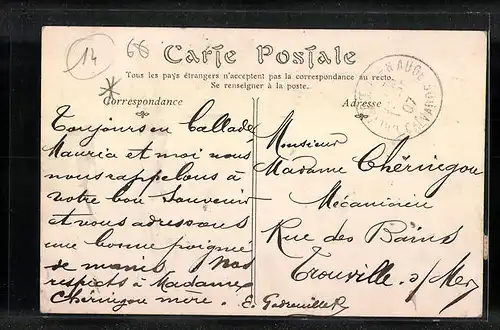 14
68
Carte Postale
Tous les pays étrangers n'acceptent pas la correspondance au recto.
Se renseigner à la poste.
Correspondance
Adresse
07
Toujours en Ballade
Mauria et moi nous
nous rappelons à
votre bon souvenir
et vous adressons
une bonne poignée
de mains. Nos
respects à Madame
Chéringou mère.
Monsieur
Madame Chéringou
Mécanicien
Rue des Bains
Trouville s/Mer